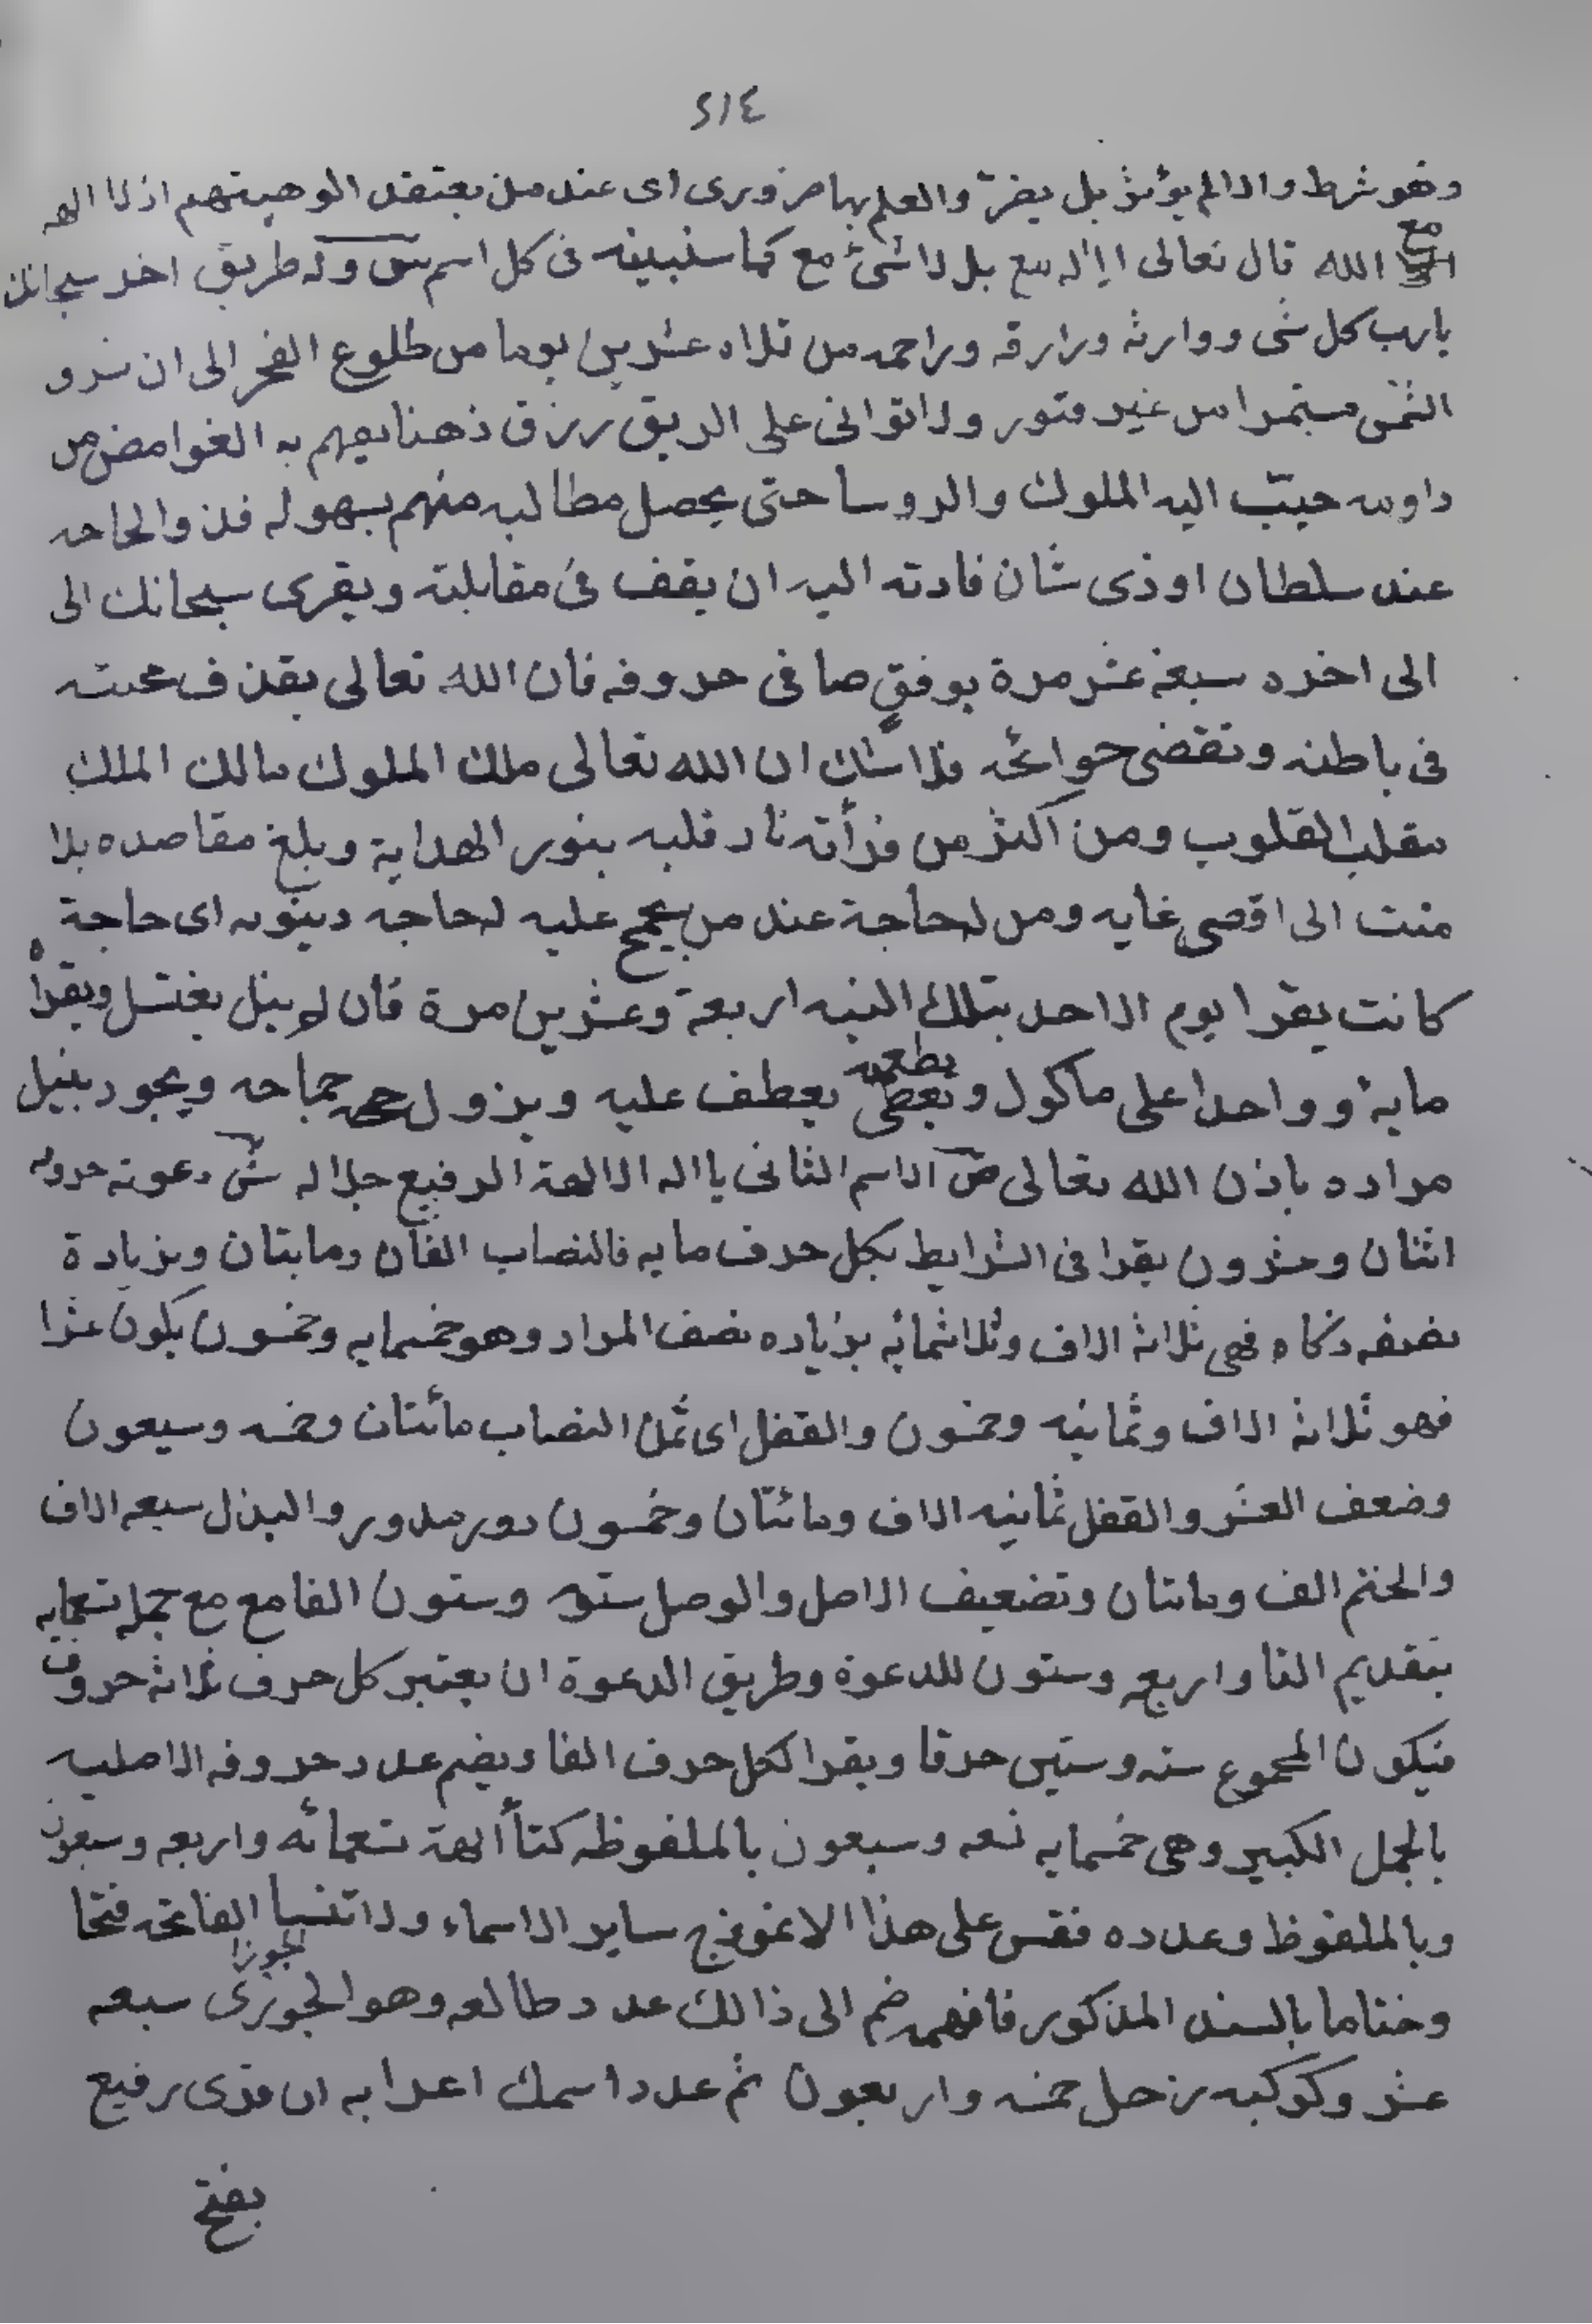 ٢١٤
وهو شرط والا لم يؤثر بل يضر والعلم بها ضروری ای عند من يعتقد الوهيتهم اذ لا اله
مع الله قال تعالى االه مع بل لا شئ مع كما سنبينه فی كل اسم وله طريق اخر سبحانك
يا رب كل شی ووارثه ورازقه وراحمه من تلاه عشرين يوما من طلوع الفجر الى ان
الشمس مستمرا من غير فتور ولا توانی على الريق رزق ذهنا يفهم به الغوامض من
داومه حبب اليه الملوك والروسا حتى يحصل مطالبه منهم بسهوله فذو الحاجه
عند سلطان او ذی شان فادته اليه ان يقف فی مقابلته ويقری سبحانك الى
الى اخره سبعة عشر مرة بوفق صافی حروفه فان الله تعالى يقذف محبته
فی باطنه وتقضی حوائجه فلا شك ان الله تعالى ملك الملوك مالك الملك
مقلب القلوب ومن اكثر من قرأته نار قلبه بنور الهداية وبلغ مقاصده بلا
منت الى اقصی غايه ومن له حاجة عند من يجمح عليه لحاجه دينويه ای حاجة
كانت يقرا يوم الاحد بتلك النيه اربعة وعشرين مرة فان لم ينل يغتسل ويقرا
مايه وواحدا على ماكول ويطعمه يعطف عليه ويزول جماحه ويجود بنيل
مراده باذن الله تعالى الاسم الثانی يا اله الالهة الرفيع جلاله دعوته حروفه
اثنان وعشرون يقرا فی الشرايط بكل حرف مايه فالنصاب الفان ومايتان وبزيادة
نصفه زكاه فهی ثلاثة الاف وثلاثمائه بزياده نصف المراد وهو خمسمايه وخمسون يكون عشرا
فهو ثلاثة الاف وثمانيه وخمسون والقفل ای ثمن النصاب مائتان وخمسه وسبعون
وضعف العشر والقفل ثمانيه الاف ومائتان وخمسون دور مدور والبذل سبعه الاف
والختم الف ومائتان وتضعيف الاصل والوصل سته وستون الفا مع مع جمله تسعمايه
بتقديم التا واربعه وستون للدعوة وطريق الدعوة ان يعتبر كل حرف ثلاثة حروف
فيكون المجموع سته وستين حرفا ويقرا لكل حرف الفا ويضم عدد حروفه الاصليه
بالجمل الكبير وهی خمسمايه تسعه وسبعون بالملفوظه كتاألهة تسعمائه واربعه وسبعون
وبالملفوظ وعدده فقس على هذا الانموذج ساير الاسماء ولا تنسا الفاتحه فتحا
وختاما بالسند المذكور فافهم ضم الى ذالك عدد طالعه وهو الجوزی الجوزا سبعه
عشر وكوكبه زحل خمسه واربعون ثم عدد اسمك اعدا به ان قوی رفيع
بفتح